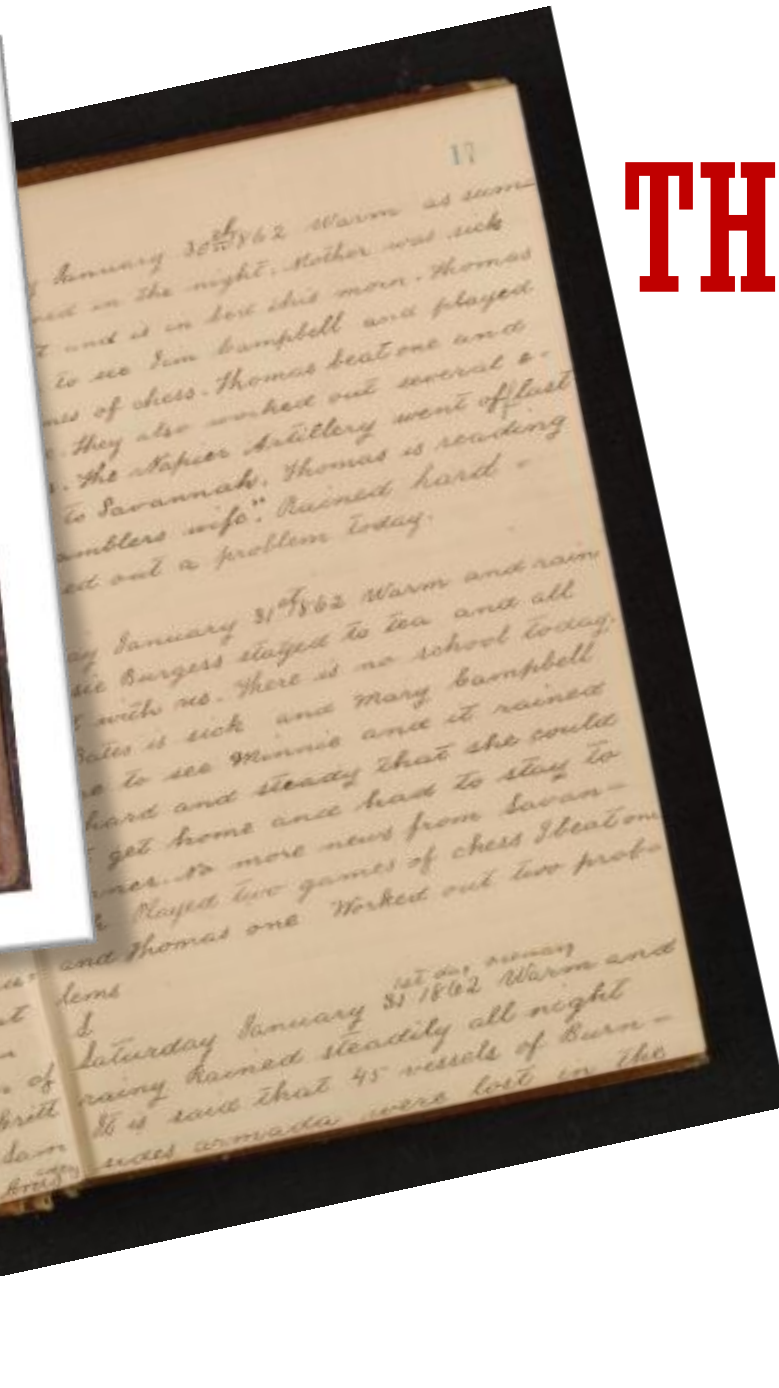 17
January 30th 1862 Warm as sum-
ed in the night. Mother was sick
and is in bed this morn. Thomas
to see Jim Campbell and played
mes of chess. Thomas beat one and
. They also worked out several e-
. The Napier Artillery went off last
to Savannah. Thomas is reading
amblers wife". Rained hard -
ed out a problem today.
ay January 31st 1862 Warm and rain
sie Burgess stayed to tea and all
t with us. There is no school today.
Bates is sick and Mary Campbell
e to see Minnie and it rained
hard and steady that she could
t get home and had to stay to
nner. No more news from Savan-
h Played two games of chess I beat one
and Thomas one Worked out two prob-
lems
1st day
Saturday January 31 1862 Warm and
rainy Rained steadily all night
It is said that 45 vessels of Burn-
sides armada were lost in the
st
of
Britt
Sam
TH